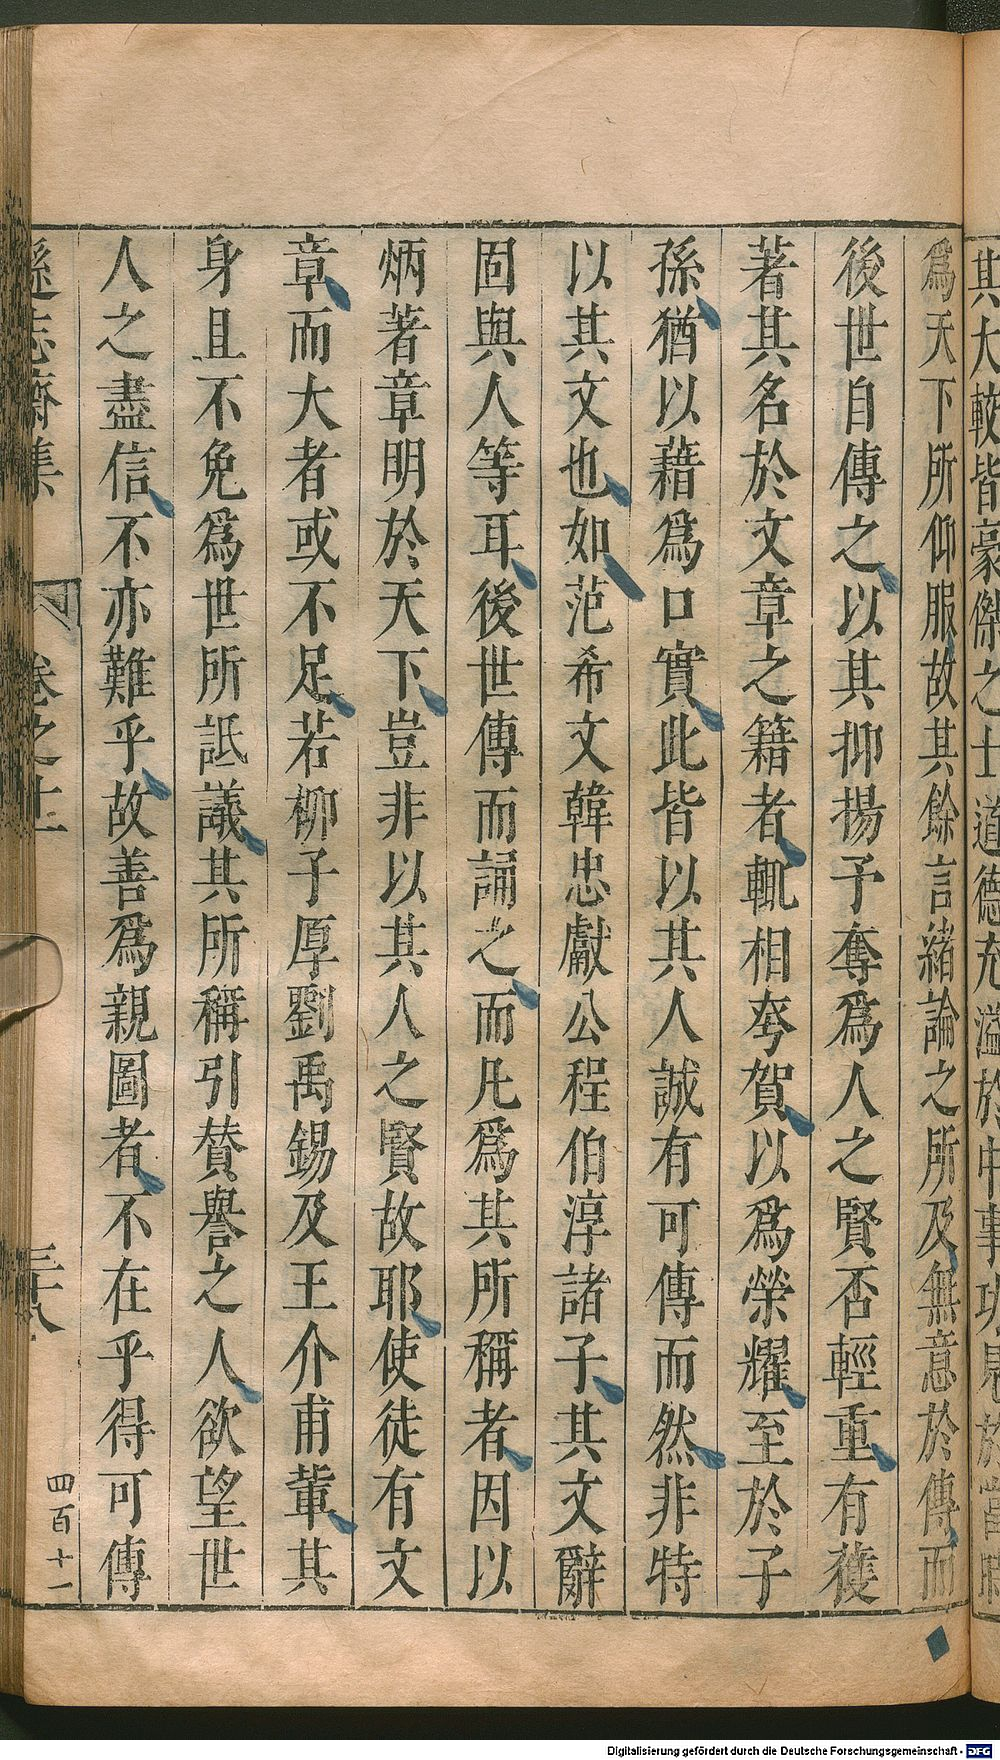 其大較皆豪傑之士道德充溢於中事功
爲天下所仰服故其餘言緒論之所及無意於傳而
後世自傳之以其抑揚予奪爲人之賢否輕重有獲
著其名於文章之籍者輒相夸賀以爲榮耀至於子
孫猶以藉爲口實此皆以其人誠有可傳而然非特
以其文也如范希文韓忠獻公程伯淳諸子其文辭
固與人等耳後世傳而誦之而凡爲其所稱者因以
炳著章明於天下豈非以其人之賢故耶使徒有文
章而大者或不足若柳子厚劉禹錫及王介甫輩其
身且不免爲世所詆議其所稱引賛譽之人欲望世
人之盡信不亦難乎故善爲親圖者不在乎得可傳
遜志齋集
卷之十
三十八
四百十一
Digitalisierung gefördert durch die Deutsche Forschungsgemeinschaft - DFG